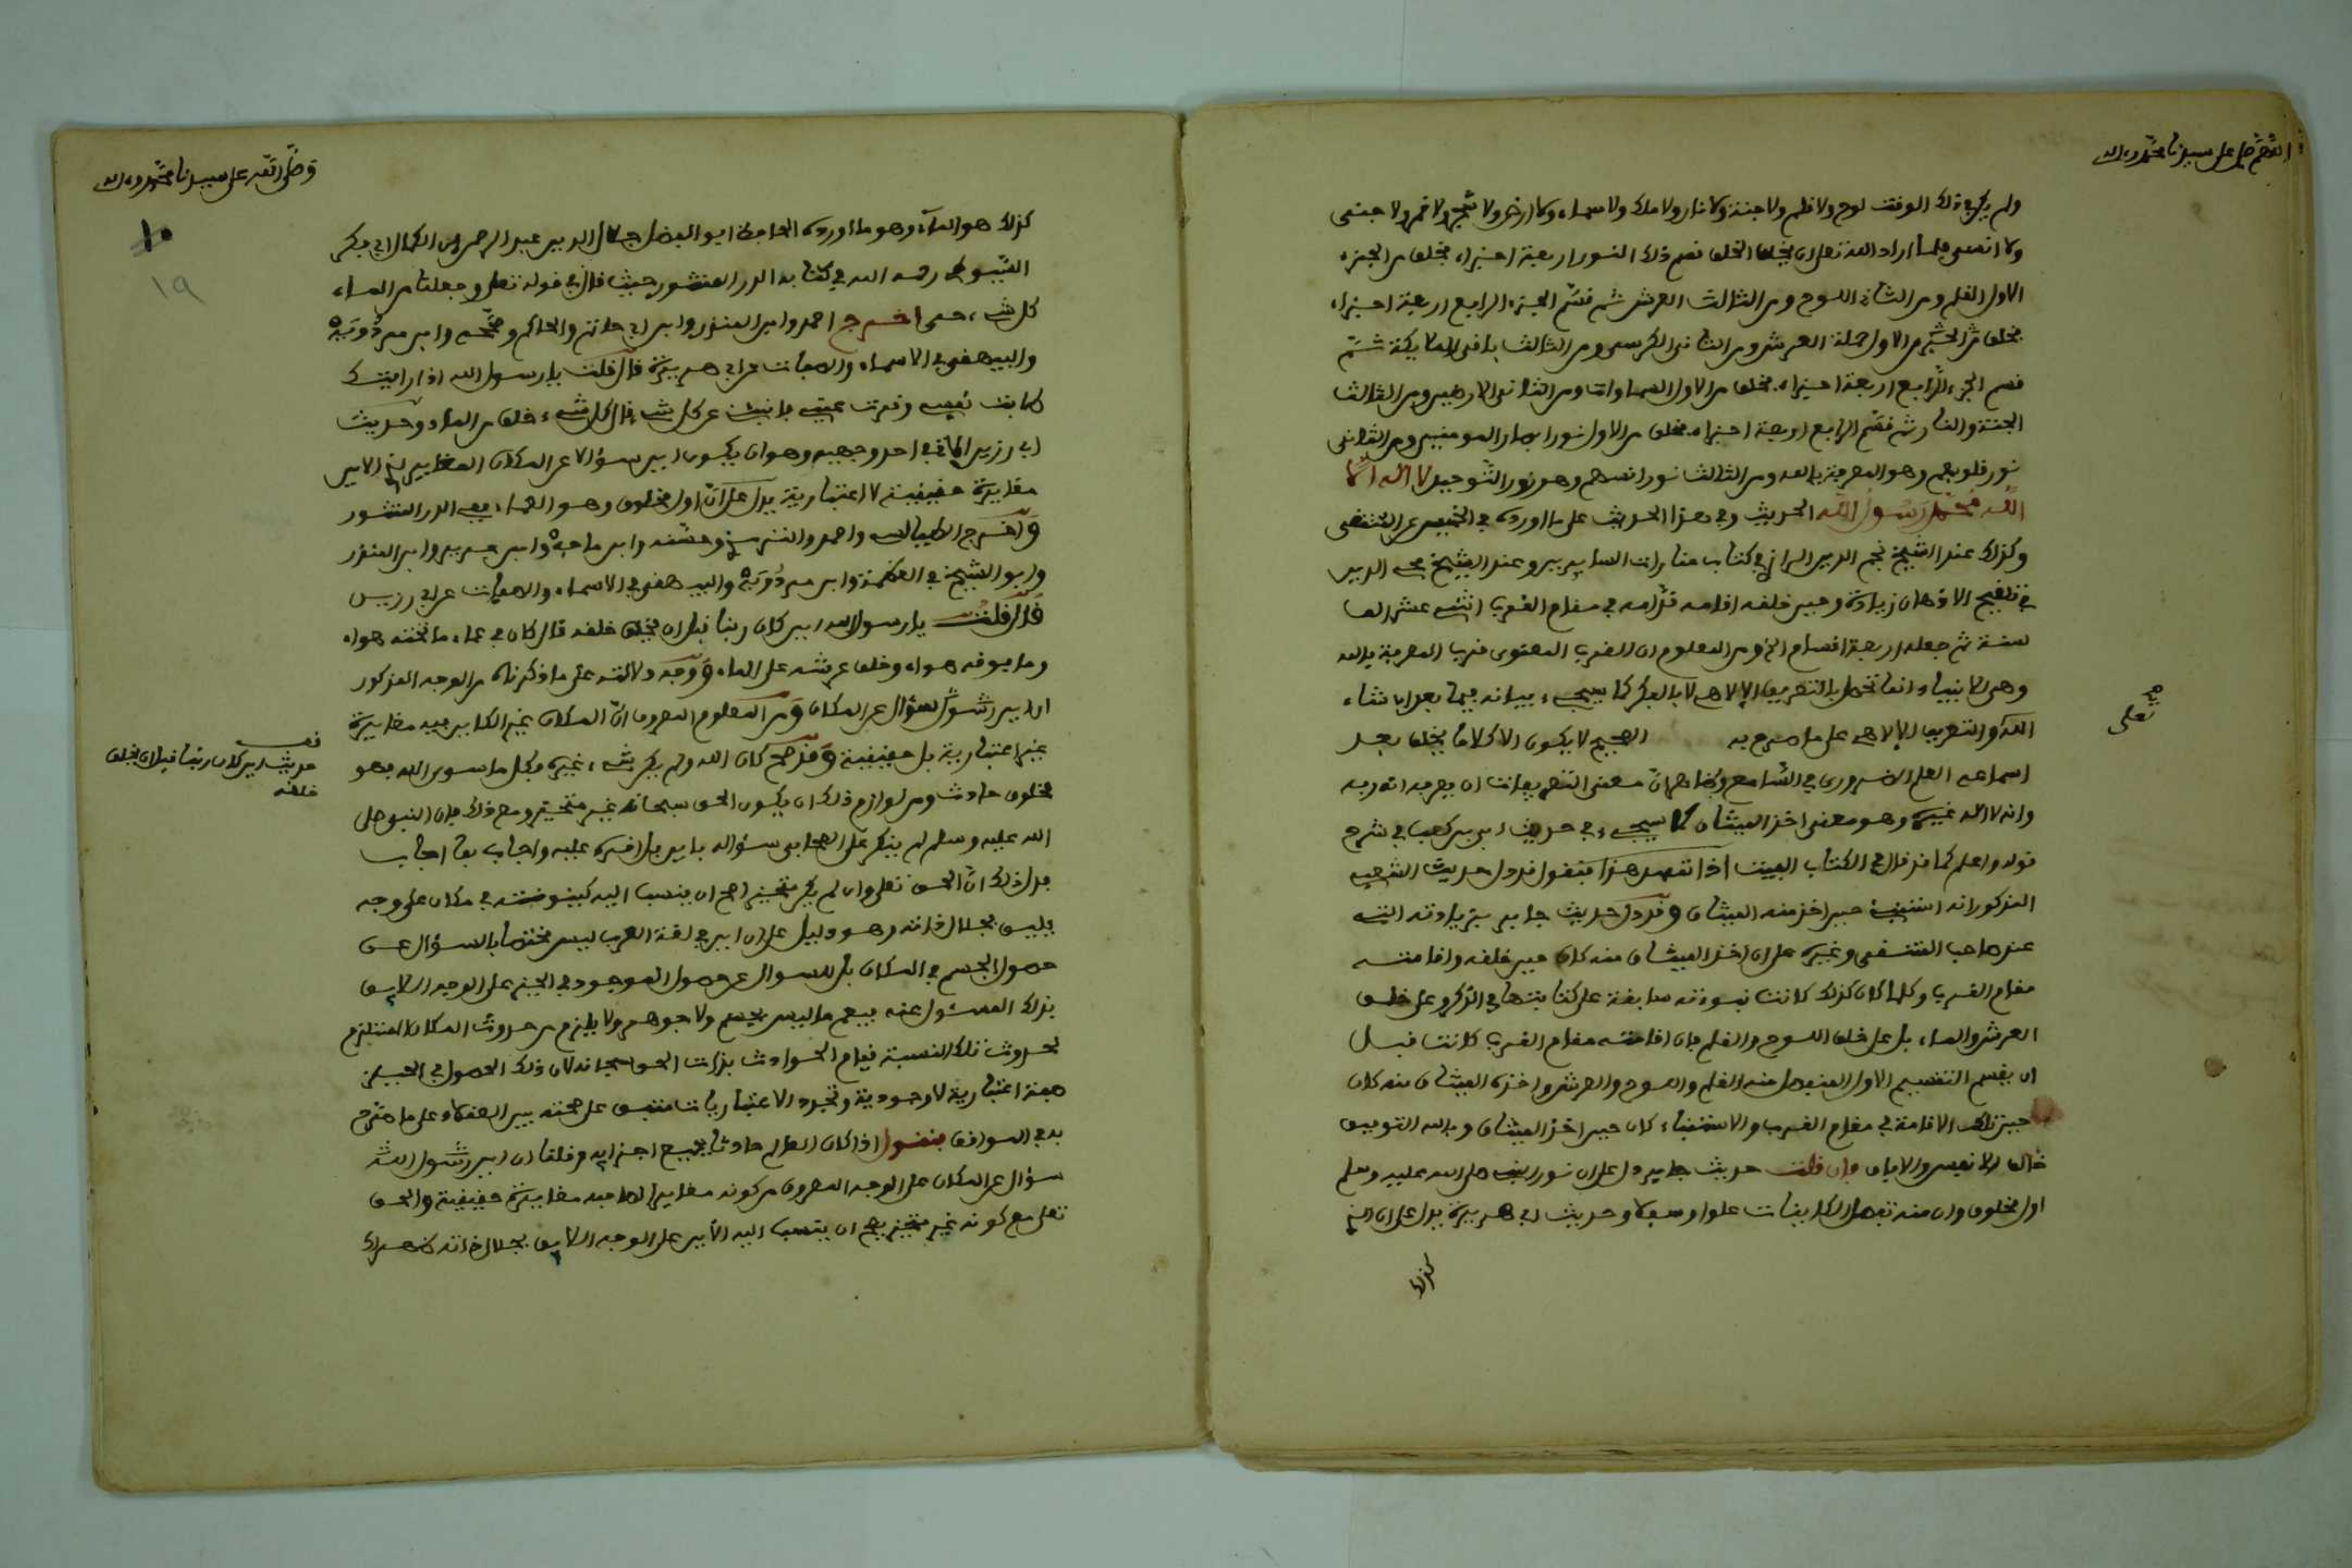 اللهم صل على سيدنا محمد وءاله
ولم يكن في ذلك الوقت لوح ولا قلم ولا جنة ولا نار ولا ملك ولا سماء ولا ارض ولا شمس ولا قمر ولا جنى
ولا انسى فلما اراد الله تعلى ان يخلق الخلق قسم ذلك النور اربعة اجزاء فخلق من الجزء
الاول القلم ومن الثانى اللوح ومن الثالث العرش ثم قسم الجزء الرابع اربعة اجزاء
فخلق من الجزء الاول حملة العرش ومن الثانى الكرسى ومن الثالث باقى الملايكة ثم
قسم الجزء الرابع اربعة اجزاء فخلق من الاول السماوات ومن الثانى الارضين ومن الثالث
الجنة والنار ثم قسم الرابع اربعة اجزاء فخلق من الاول نور ابصار المومنين ومن الثانى
نور قلوبهم وهو المعرفة بالله ومن الثالث نور انسهم وهو نور التوحيد لا اله الا
الله محمد رسول الله الحديث وفي هذا الحديث على ما اورده في الخميس عن المنتقى
وكذلك عند الشيخ نجم الدين الرازي في كتاب منارات السايرين وعند الشيخ محي الدين
في تلقيح الاذهان زيادة وحين خلقه اقامه قدامه في مقام القرب اثنى عشر الف
سنة ثم جعله اربعة اقسام الخ ومن المعلوم ان القرب المعنوى قرب المعرفة بالله
وهى للانبياء انما تحصل بالتعريف الالاهى لا بالفكر كما سيجيء بيانه فيما بعد ان شاء
الله والتعريف الالاهى على ما صرح به الصحيح لا يكون الا كلاما يخلق بعد
صح
تعلى
اسماعه العلم الضرورى في السامع وظاهر ان معنى التعريفات ان يعرفه انه ربه
وانه لا اله غيره وهو معنى اخذ الميثاق كما سيجيء في حديث ابي بن كعب في شرح
قوله واعلم كما قد قال في الكتاب المبين اذا تمهد هذا فنقول قد دل حديث الشعبي
المذكور انه استنبئ حين اخذ منه الميثاق وقد دل حديث جابر بزيادته التى
عند صاحب المنتقى وغيره على ان اخذ الميثاق منه كان حين خلقه واقامته
مقام القرب وكلما كان كذلك كانت نبوءته سابقة على كتابتها في الذكر وعلى خلق
العرش والماء بل على خلق اللوح والقلم فان اقامته مقام القرب كانت قبل
ان يقسم التقسيم الاول المنفصل منه القلم واللوح والعرش واخذ الميثاق منه كان
حين تلك الاقامة في مقام القرب والاستنباء كان حين اخذ الميثاق وبالله التوفيق
خالق الانفس والافاق فان قلت حديث جابر دل على ان نور النبى صلى الله عليه وسلم
اول مخلوق وان منه تفصل الكاينات علوا وسفلا وحديث ابي هريرة يدل على ان
كذلك
وصلى الله على سيدنا محمد وءاله
10
١٩
كذلك هو الماء وهو ما اورده الحافظ ابو الفضل جلال الدين عبد الرحمن بن الكمال ابى بكر
السيوطى رحمه الله في كتابه الدر المنثور حيث قال في قوله تعلى وجعلنا من الماء
كل شيء حى اخرج احمد وابن المنذر وابن ابي حاتم والحاكم وصححه وابن مردويه
والبيهقى في الاسماء والصفات عن ابي هريرة قال قلت يا رسول الله اذا رايتك
طابت نفسي وقرت عينى فانبئنى عن كل شيء قال كل شيء خلق من الماء وحديث
ابي رزين الاتى في احد وجهيه وهو ان يكون اين سؤالا عن المكان المغاير لذى الاين
مغايرة حقيقية لا اعتبارية يدل على ان اول مخلوق هو العماء ففى الدر المنثور
واخرج الطيالسى واحمد والترمذى وحسنه وابن ماجه وابن جرير وابن المنذر
وابو الشيخ في العظمة وابن مردويه والبيهقى في الاسماء والصفات عن ابي رزين
قال قلت يا رسول الله اين كان ربنا قبل ان يخلق خلقه قال كان في عماء ما تحته هواء
وما فوقه هواء وخلق عرشه على الماء ووجه دلالته على ما ذكرناه من الوجه المذكور
ان اين سؤال عن المكان ومن المعلوم المعروف ان المكان غير الكاين فيه مغايرة
غير اعتبارية بل حقيقية وقد صح كان الله ولم يكن شيء غيره فكل ما سوى الله فهو
قف
حديث اين كان ربنا قبل ان يخلق
خلقه
مخلوق حادث ومن لوازم ذلك ان يكون الحق سبحانه غير متحيز ومع ذلك فان النبي صلى
الله عليه وسلم لم ينكر على الصحابى سؤاله باين بل اقره عليه واجاب بما اجاب
فدل ذلك ان الحق تعلى وان لم يكن متحيزا صح ان ينسب اليه كينونته في مكان على وجه
يليق بجلال ذاته وهو دليل على ان اين في لغة العرب ليس مختصا بالسؤال عن
حصول الجسم في المكان بل للسوال عن حصول الموجود في الحيز على الوجه اللايق
بذلك المسئول عنه فيعم ما ليس بجسم ولا جوهر ولا يلزم من حدوث المكان المستلزم
لحدوث تلك النسبة قيام الحوادث بذات الحق سبحانه لان ذلك الحصول في الحيز
صفة اعتبارية لا وجودية وتجدد الاعتباريات متفق على صحته بين العقلاء على ما صرح
به في المواقف فنقول اذا كان العالم حادثا بجميع اجزايه وقلنا ان اين
سؤال عن المكان على الوجه المعروف من كونه مغايرا لما فيه مغايرة حقيقية والحق
تعلى مع كونه غير متحيز يصح ان ينسب اليه الاين على الوجه اللايق بجلال ذاته